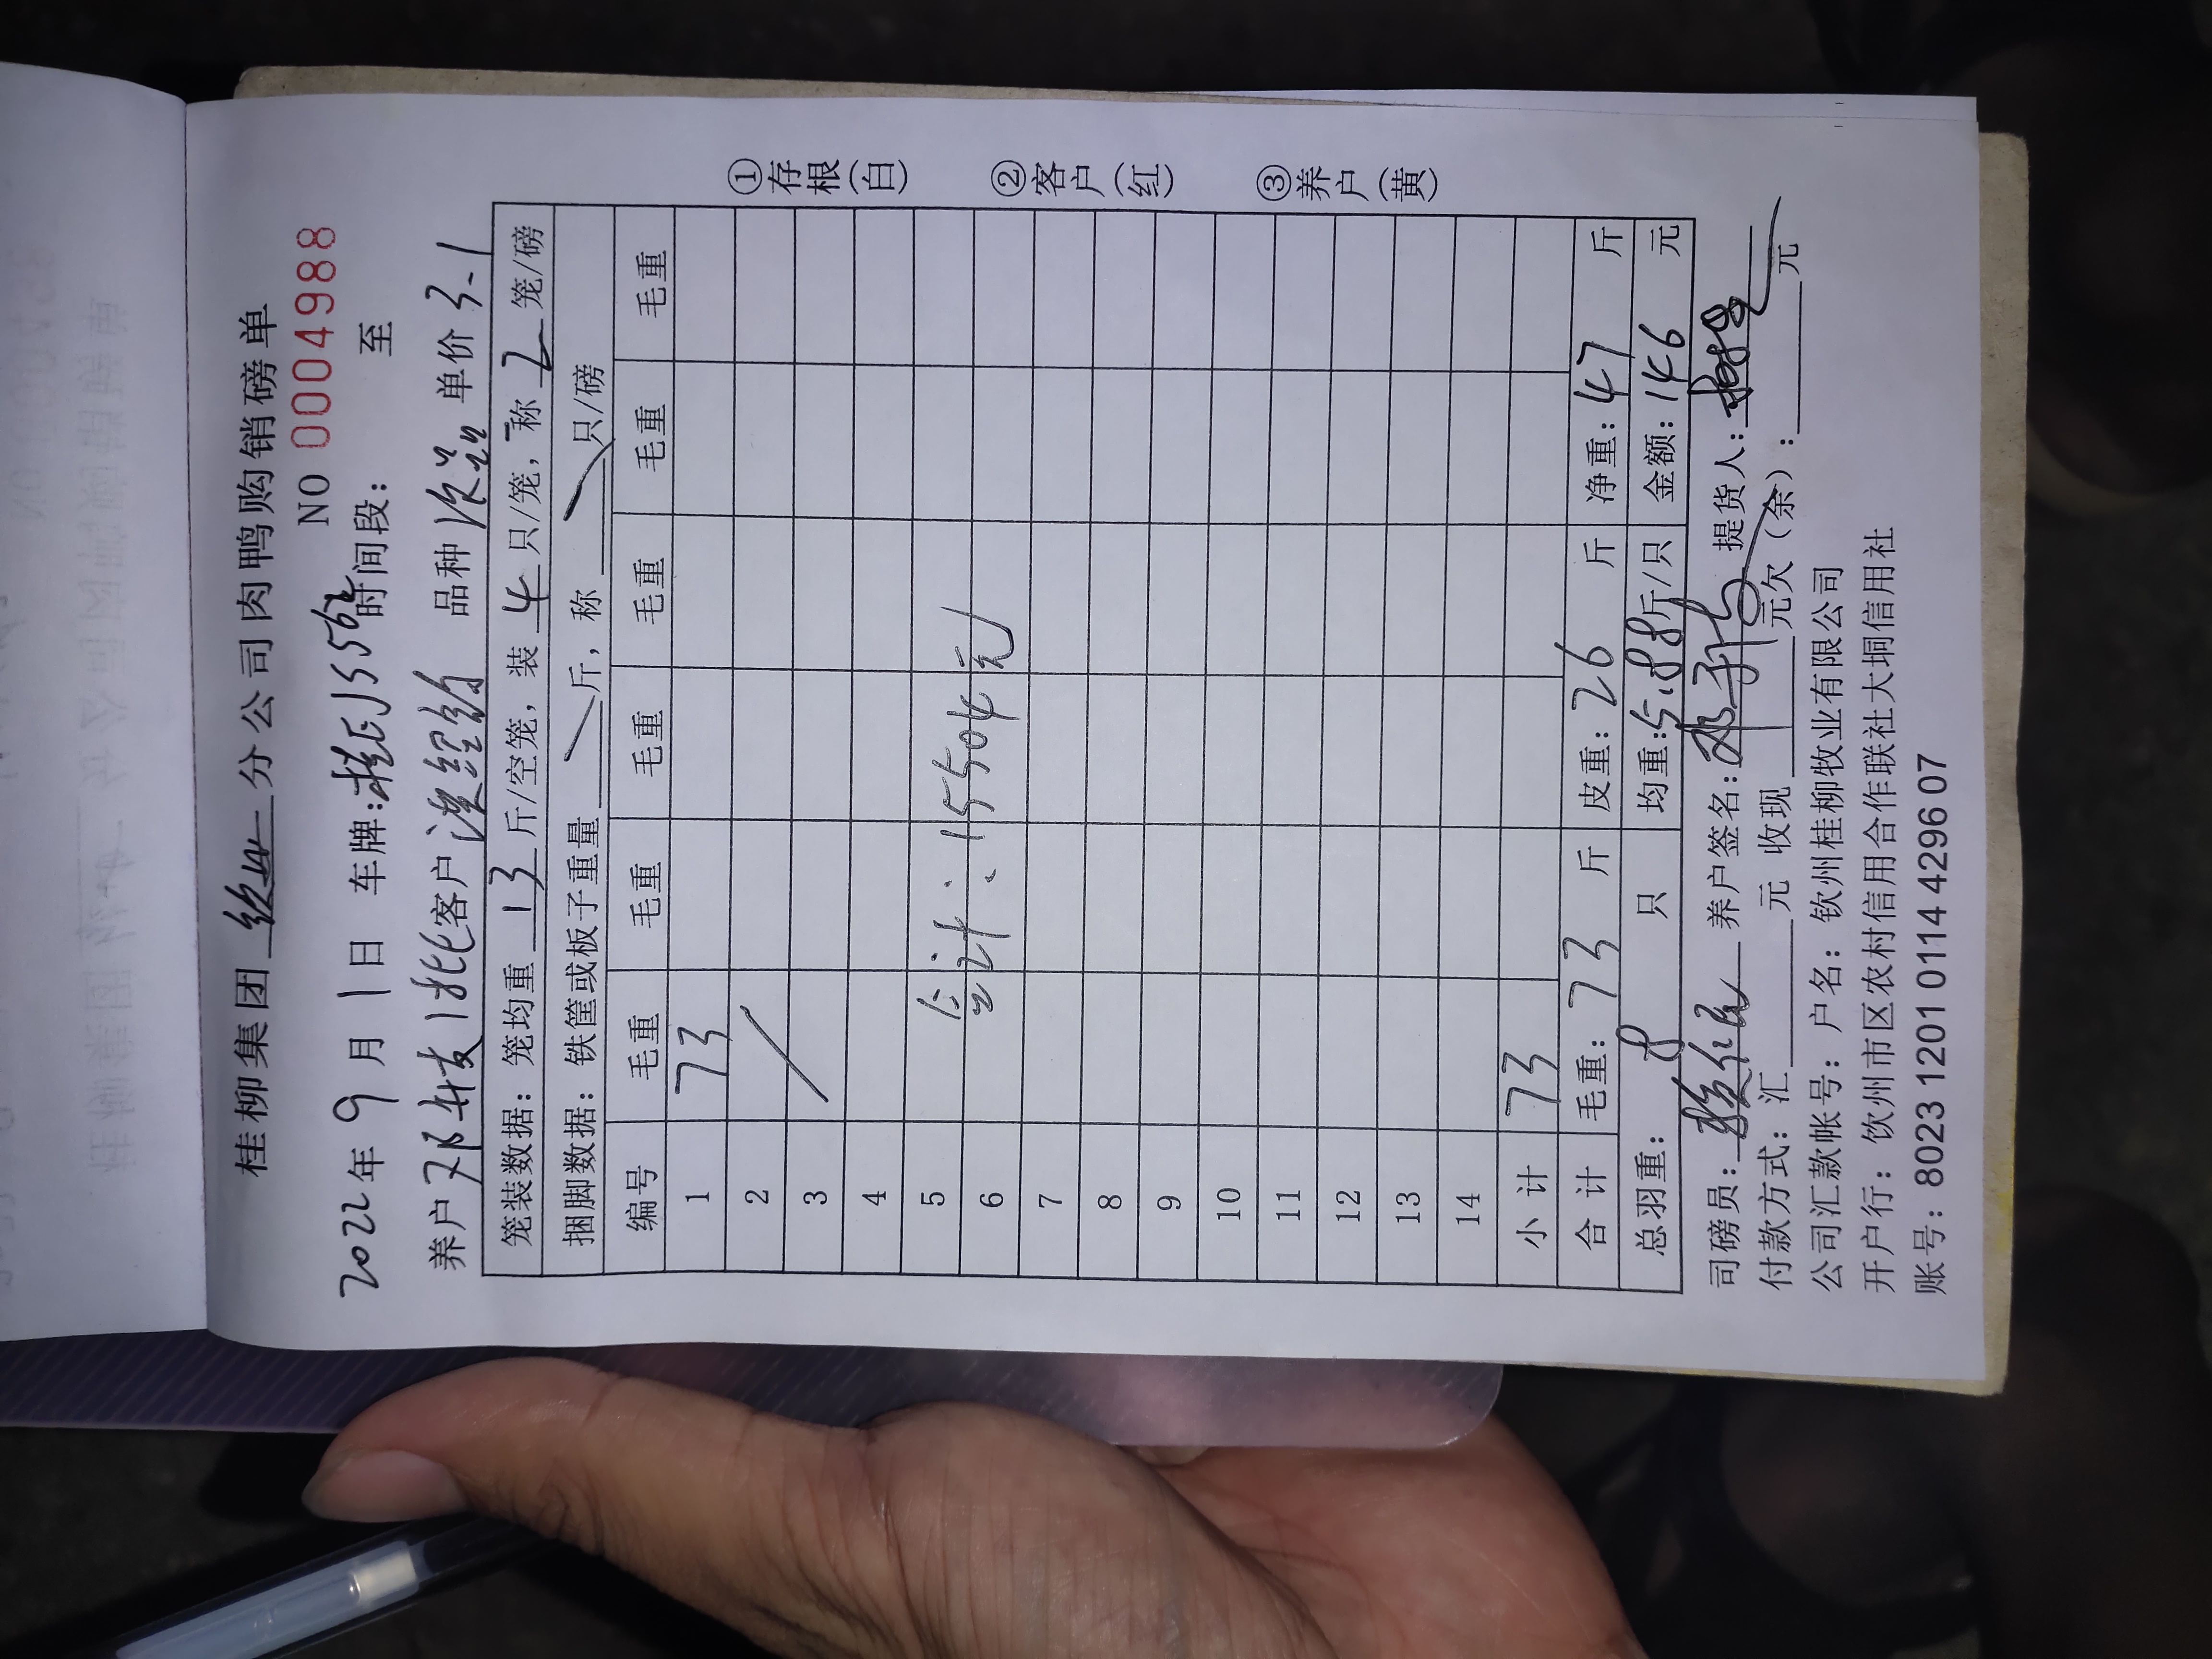 桂柳集团 分公司肉鸭购销磅单
NO 0004988
2022年 9 月 1 日 车牌: 时间段: 至
养户 1批 客户 品种 次品 单价 3.1
笼装数据: 笼均重 13 斤/空笼, 装 4 只/笼, 称 2 笼/磅
捆脚数据: 铁筐或板子重量 / 斤, 称 / 只/磅
编号 毛重 毛重 毛重 毛重 毛重 毛重
1 73
2 /
3
4
5
6
合计: 15504元
7
8
9
10
11
12
13
14
小 计 73
合 计 毛重: 73 斤 皮重: 26 斤 净重: 47 斤
总羽重: 8 只 均重: 5.88斤/只 金额: 146 元
司磅员: 养户签名: 提货人:
付款方式: 汇 元 收现 元欠(余): 元
公司汇款帐号: 户名: 钦州桂柳牧业有限公司
开户行: 钦州市区农村信用合作联社大垌信用社
账号: 8023 1201 0114 4296 07
①存根(白)
②客户(红)
③养户(黄)